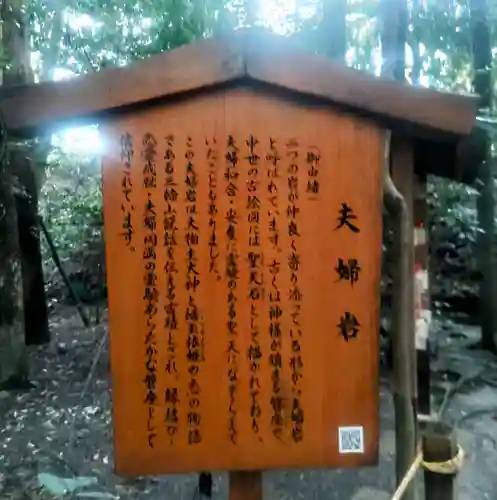 夫婦岩
(御由緒)
二つの岩が仲良く寄り添っている形から夫婦岩
と呼ばれています。古くは神様が鎮まる磐座で、
中世の古絵図には聖天石として描かれており、
夫婦和合・安産に霊験のある聖天になぞらえて
いたこともありました。
この夫婦岩は大物主大神と活玉依姫の恋の物語
である三輪山説話を伝える霊蹟とされ、縁結び・
恋愛成就・夫婦円満の霊験あらたかな磐座として
信仰されています。